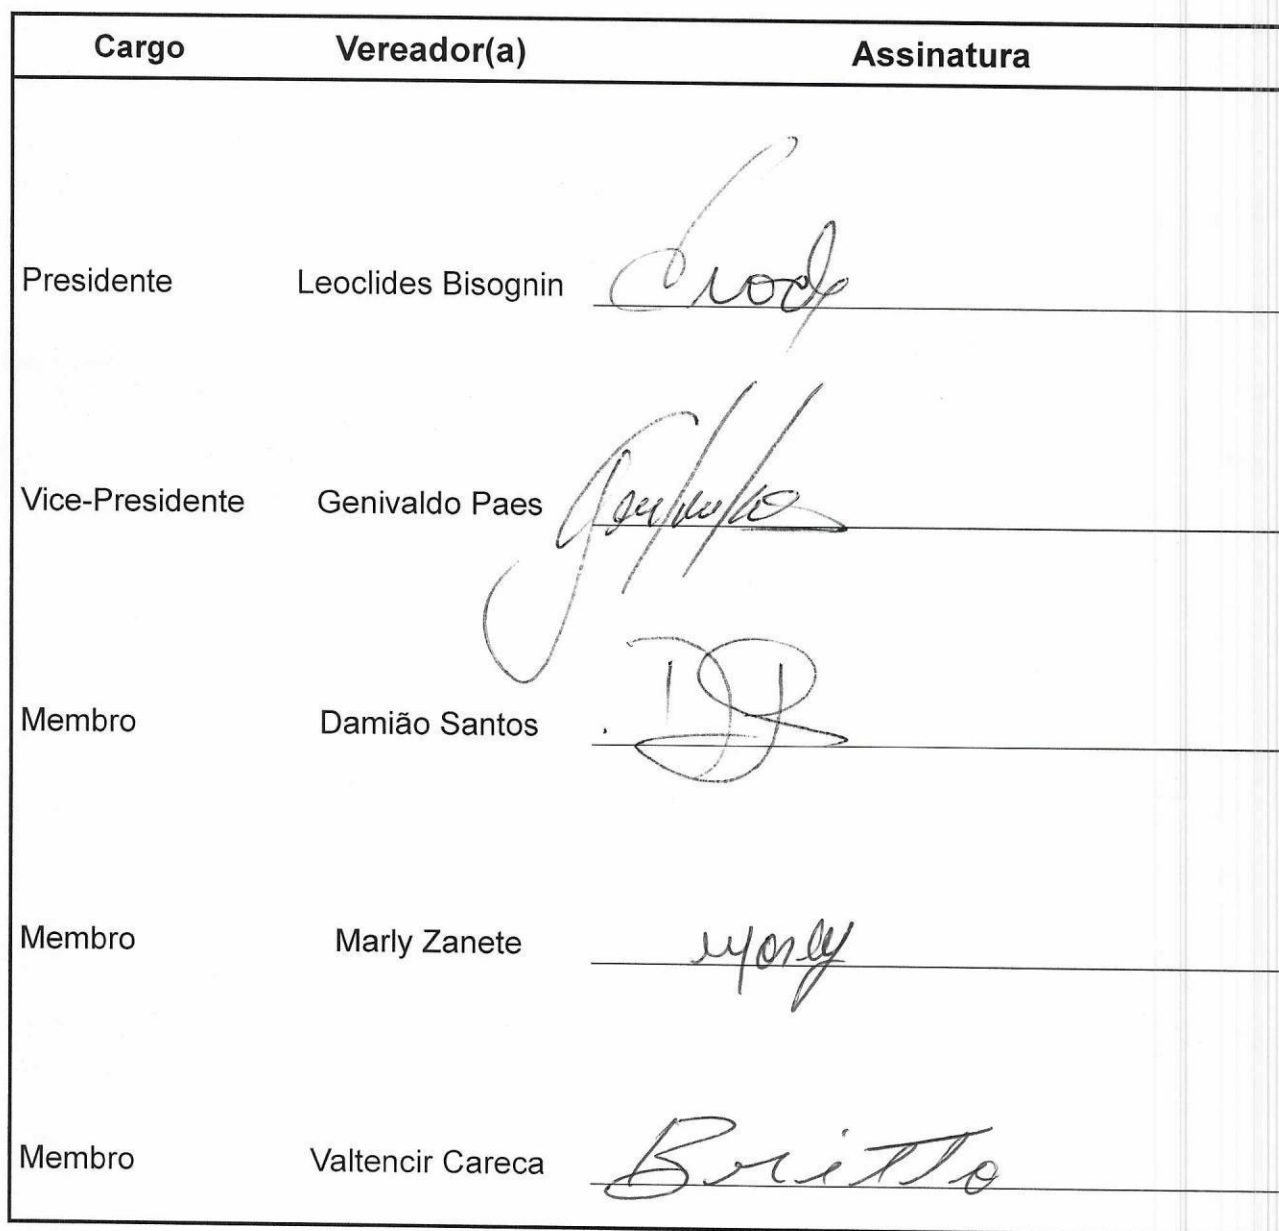 Cargo Vereador(a) Assinatura
Presidente Leoclides Bisognin
Vice-Presidente Genivaldo Paes
Membro Damião Santos
Membro Marly Zanete Marly
Membro Valtencir Careca Britto